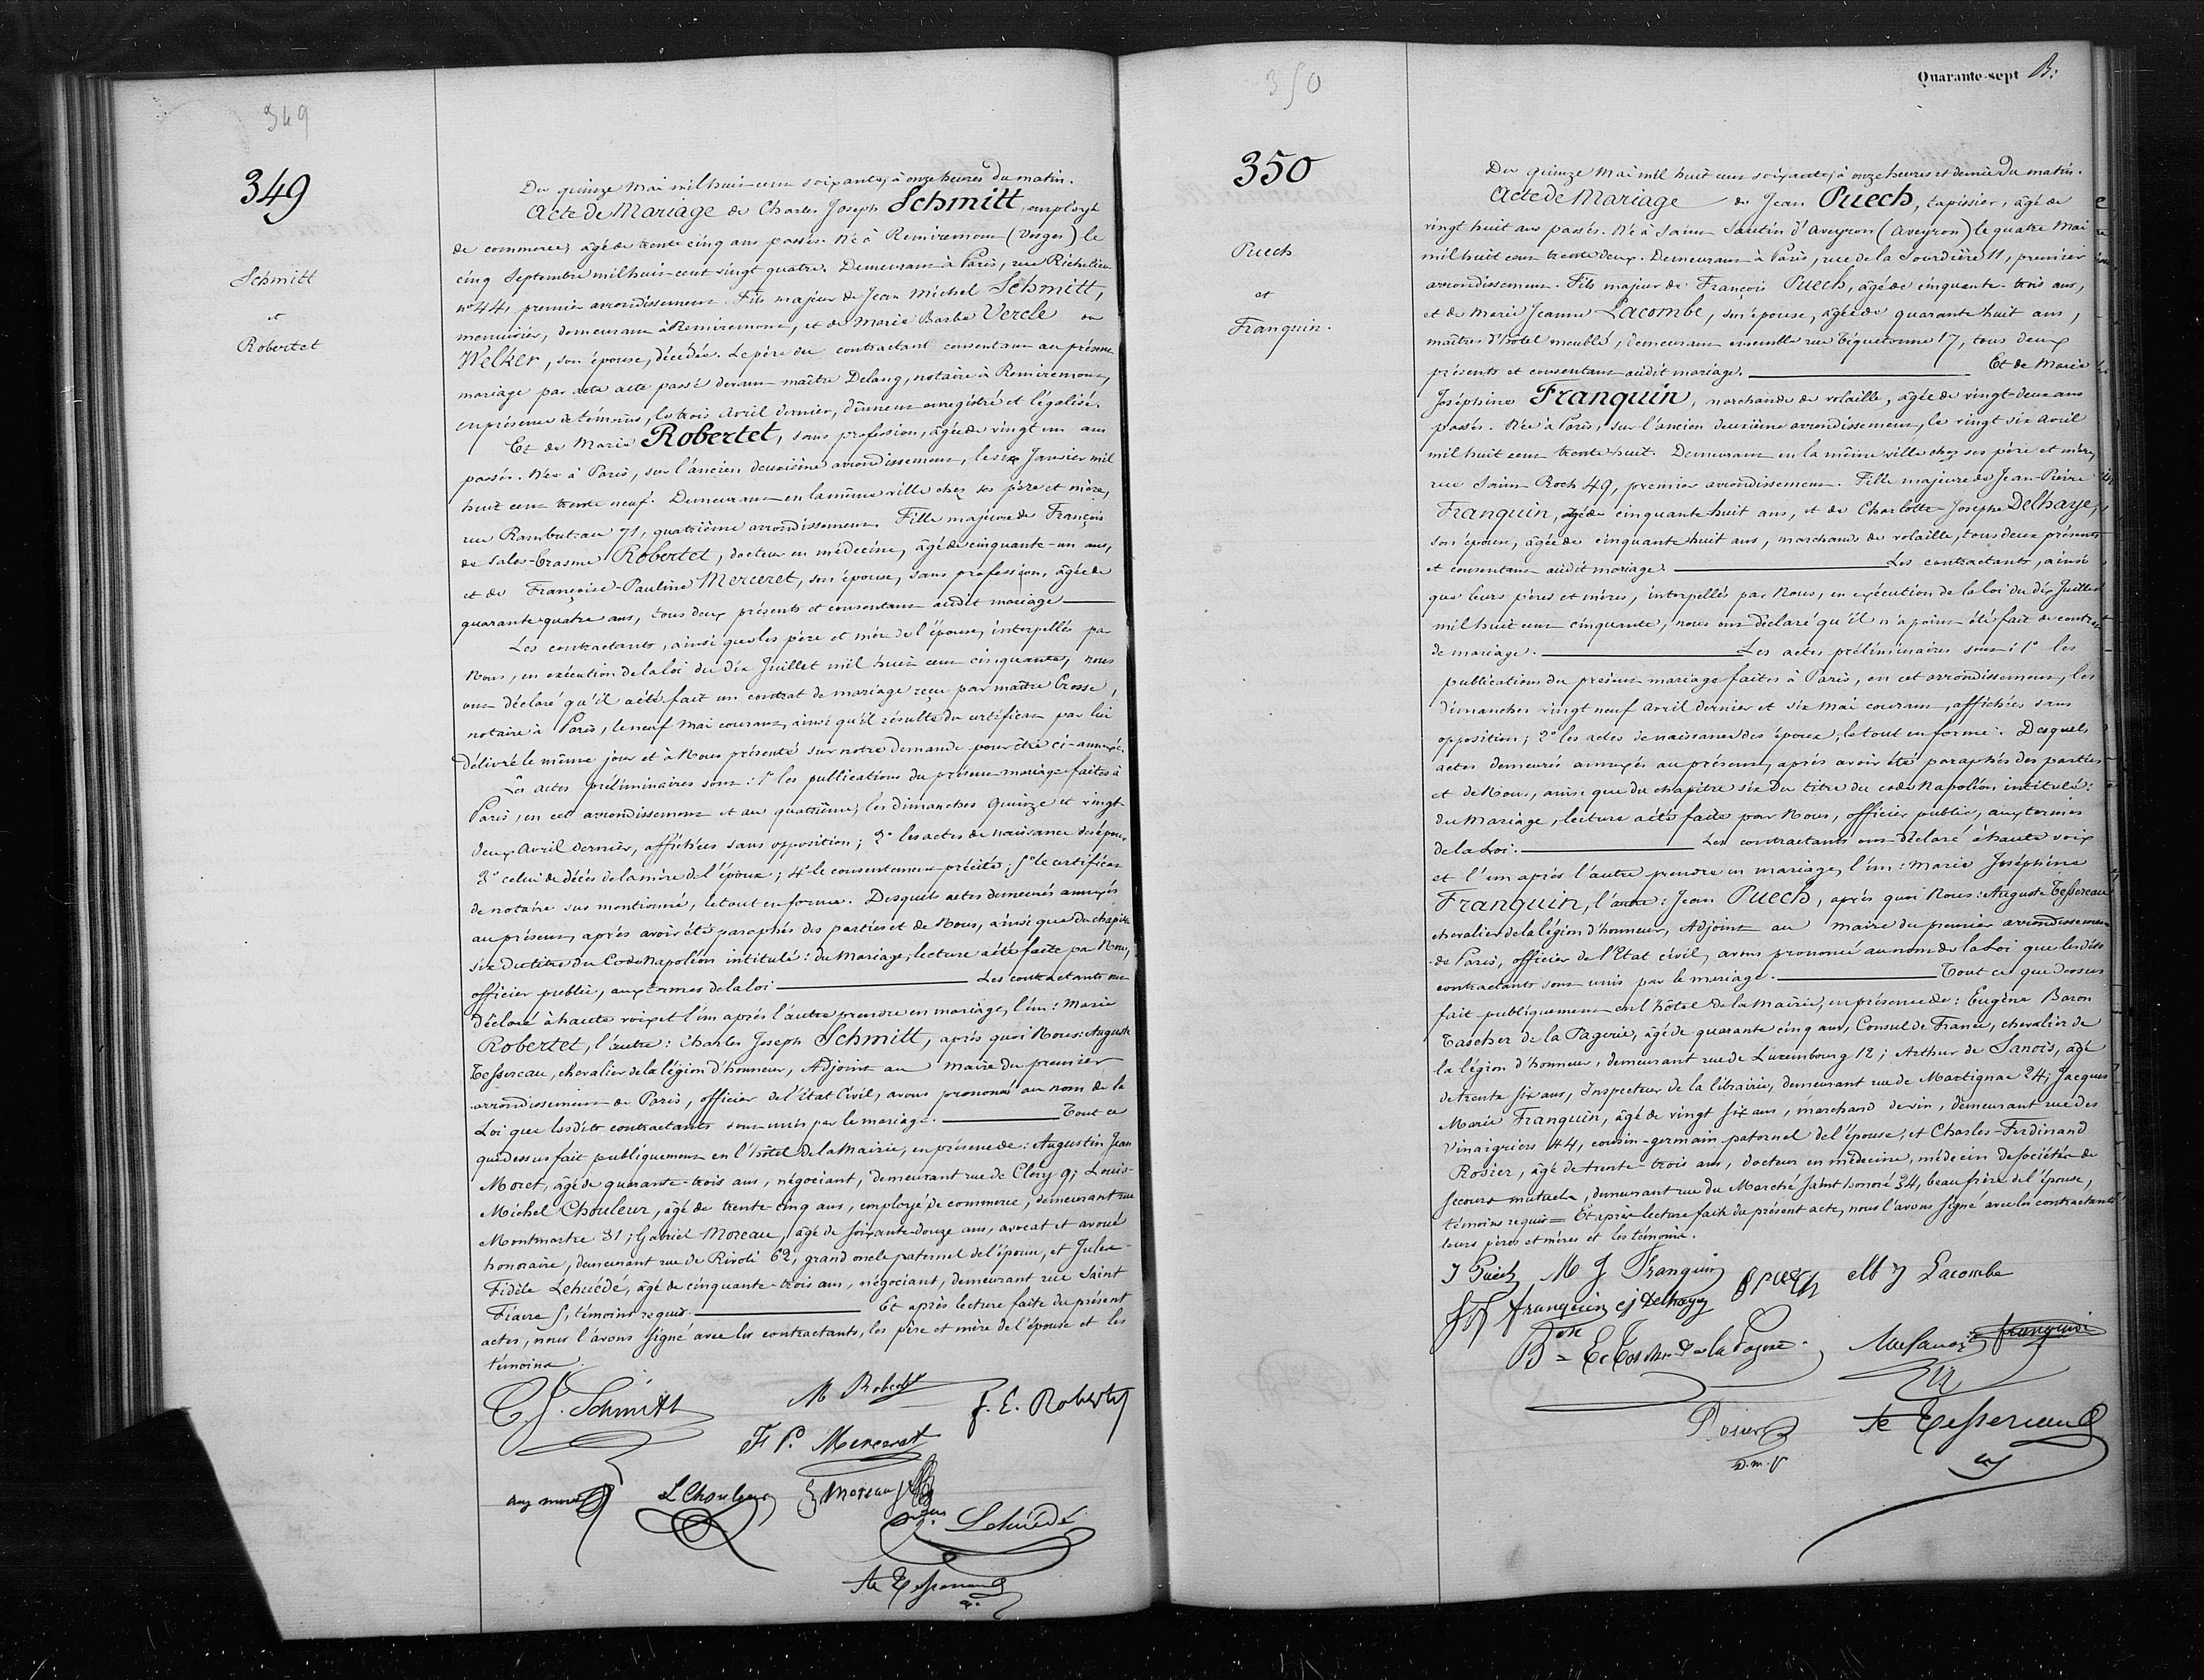 349
349
Schmitt
et
Robertet
Du quinze Mai mil huit cent soixante, à onze heures du matin.
Acte de Mariage de Charles Joseph Schmitt, employé
de commerce, âgé de trente cinq ans passés. Né à Remiremont (Vosges) le
cinq Septembre mil huit cent vingt quatre. Demeurant à Paris, rue Richelieu
n° 44, premier arrondissement. Fils majeur de Jean Michel Schmitt,
menuisier, demeurant à Remiremont, et de Marie Barbe Vercle ou
Welker, son épouse, décédée. Le père du contractant consentant au présent
mariage par acte passé devant maître Delang, notaire à Remiremont,
en présence de témoins, le trois Avril dernier, dûment enregistré et légalisé.
Et de Marie Robertet, sans profession, âgée de vingt un ans
passés. Née à Paris, sur l'ancien deuxième arrondissement, le six Janvier mil
huit cent trente neuf. Demeurant en la même ville chez ses père et mère,
rue Rambuteau 71, quatrième arrondissement. Fille majeure de François
de Sales-Erasme Robertet, docteur en médecine, âgé de cinquante-un ans,
et de Françoise-Pauline Merceret, son épouse, sans profession, âgée de
quarante quatre ans, tous deux présents et consentant audit mariage
Les contractants, ainsi que les père et mère de l'épouse, interpellés par
Nous, en exécution de la loi du dix Juillet mil huit cent cinquante, nous
ont déclaré qu'il a été fait un contrat de mariage reçu par maître Crosse,
notaire à Paris, le neuf Mai courant, ainsi qu'il résulte du certificat par lui
délivré le même jour et à Nous présenté sur notre demande pour être ci-annexé.
Les actes préliminaires sont : 1° les publications du présent mariage faites à
Paris, en cet arrondissement et au quatrième, les dimanches Quinze et vingt
deux Avril dernier, affichées sans opposition ; 2° les actes de naissance des époux
3° celui de décès de la mère de l'époux ; 4° le consentement précité ; 5° le certificat
de notaire sus mentionné, le tout en forme. Desquels actes demeurés annexés
au présent, après avoir été paraphés des parties et de Nous, ainsi que du chapitre
six du titre du Code Napoléon intitulé : du Mariage, lecture a été faite par Nous,
officier public, aux termes de la loi Les contractants ont
déclaré à haute voix et l'un après l'autre prendre en mariage, l'un : Marie
Robertet, l'autre : Charles Joseph Schmitt, après quoi Nous : Auguste
Tessereau, chevalier de la légion d'honneur, Adjoint au maire du premier
arrondissement de Paris, officier de l'Etat Civil, avons prononcé au nom de la
Loi que lesdits contractants sont unis par le mariage. Tout ce
que dessus fait publiquement en l'hôtel de la Mairie, en présence de : Augustin Jean
Moret, âgé de quarante-trois ans, négociant, demeurant rue de Cléry 9 ; Louis-
Michel Chouleur, âgé de trente-cinq ans, employé de commerce, demeurant rue
Montmartre 31 ; Gabriel Moreau, âgé de soixante-douze ans, avocat et avoué
honoraire, demeurant rue de Rivoli 62, grand oncle paternel de l'épouse, et Jules-
Fidèle Lehuédé, âgé de cinquante-trois ans, négociant, demeurant rue Saint
Fiacre 5, témoins requis. Et après lecture faite du présent
acte, nous l'avons signé avec les contractants, les père et mère de l'épouse et les
témoins.
C. J. Schmitt
M Robertet
f. E. Robertet
F P. Merceret
Aug moret
L Chouleur
G Moreau
Lehuédé
Ate Tessereau
350
Quarante-sept
350
Puech
et
Franquin.
Du quinze Mai mil huit cent soixante, à onze heures et demie du matin.
Acte de Mariage de Jean Puech, tapissier, âgé de
vingt huit ans passés. Né à Saint Santin d'Aveyron (Aveyron) le quatre Mai
mil huit cent trente deux. Demeurant à Paris, rue de la Sourdière 11, premier
arrondissement. Fils majeur de François Puech, âgé de cinquante-trois ans,
et de Marie Jeanne Lacombe, son épouse, âgée de quarante huit ans,
maîtres d'hôtel meublé, demeurant ensemble rue Tiquetonne 17, tous deux
présents et consentant audit mariage. Et de Marie
Joséphine Franquin, marchande de volaille, âgée de vingt-deux ans
passés. Née à Paris, sur l'ancien deuxième arrondissement, le vingt six avril
mil huit cent trente huit. Demeurant en la même ville chez ses père et mère,
rue Saint Roch 49, premier arrondissement. Fille majeure de Jean-Pierre
Franquin, âgé de cinquante huit ans, et de Charlotte-Josephe Delhaye,
son épouse, âgée de cinquante huit ans, marchands de volaille, tous deux présents
et consentant audit mariage. Les contractants, ainsi
que leurs pères et mères, interpellés par Nous, en exécution de la loi du dix Juillet
mil huit cent cinquante, nous ont déclaré qu'il n'a point été fait de contrat
de mariage. Les actes préliminaires sont : 1° les
publications du présent mariage faites à Paris, en cet arrondissement, les
dimanches vingt neuf Avril dernier et six Mai courant, affichées sans
opposition ; 2° les actes de naissance des époux, le tout en forme. Desquels
actes demeurés annexés au présent, après avoir été paraphés des parties
et de Nous, ainsi que du chapitre six du titre du code Napoléon intitulé :
du Mariage, lecture a été faite par Nous, officier public, aux termes
de la Loi. Les contractants ont déclaré à haute voix
et l'un après l'autre prendre en mariage, l'un : Marie Joséphine
Franquin, l'autre : Jean Puech, après quoi Nous : Auguste Tessereau
chevalier de la légion d'honneur, Adjoint au maire du premier arrondissement
de Paris, officier de l'Etat civil, avons prononcé au nom de la Loi que lesdits
contractants sont unis par le mariage. Tout ce que dessus
fait publiquement en l'hôtel de la Mairie, en présence de : Eugène Baron
Tascher de la Pagerie, âgé de quarante cinq ans, Consul de France, chevalier de
la légion d'honneur, demeurant rue de Luxembourg 12 ; Arthur de Sanois, âgé
de trente six ans, Inspecteur de la librairie, demeurant rue de Martignac 24 ; Jacques
Marie Franquin, âgé de vingt six ans, marchand de vin, demeurant rue des
Vinaigriers 44, cousin-germain paternel de l'épouse, et Charles-Ferdinand
Rosier, âgé de trente-trois ans, docteur en médecine, médecin de sociétés de
secours mutuels, demeurant rue du Marché Saint honoré 34, beau frère de l'épouse,
témoins requis = Et après lecture faite du présent acte, nous l'avons signé avec les contractants
leurs pères et mères et les témoins.
J Puech
M J Franquin
puech
M J Lacombe
franquin
cj Delhaye
Bon E de Tascher de la Pagerie
franquin
Rosier
D. m. P
Ate Tessereau